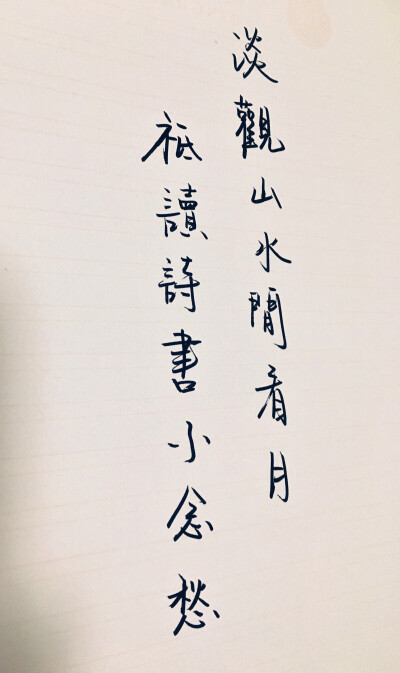 淡觀山水閒看月
祗讀詩書小念愁